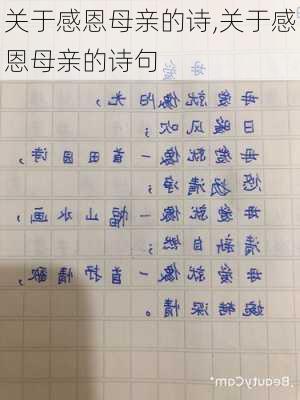 关于感恩母亲的诗,关于感
恩母亲的诗句
母爱
母爱就像阳光，
日暖风吹；
母爱就像一首田园诗，
悠远清净；
母爱就像一幅山水画，
清新自然；
母爱就像一首抒情歌，
婉转深情。
BeautyCam